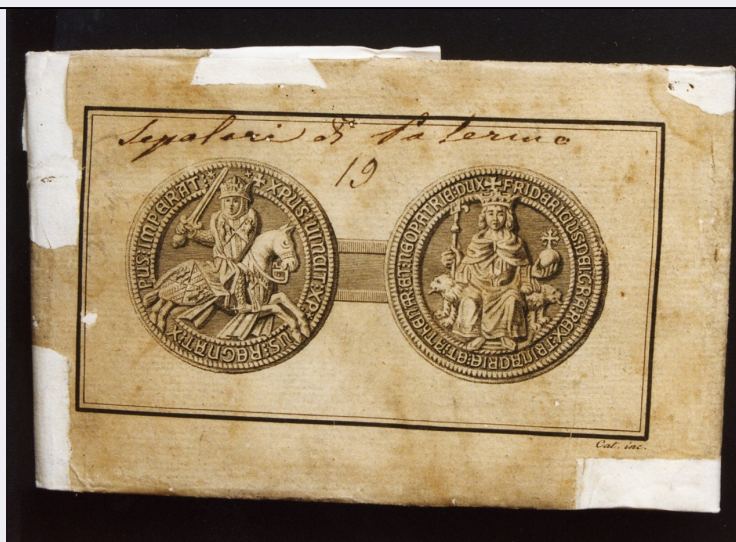 Sepolcri di Palermo
19
XPUS:VINCIT:XP
US:REGNAT:X
PUS:IMPERAT:
FRIDERICUS:DEI:GRA:REX:TRINACRIE:
ET:ATHENAR:ET:NEOPATRIE:DUX
Cat. inc.